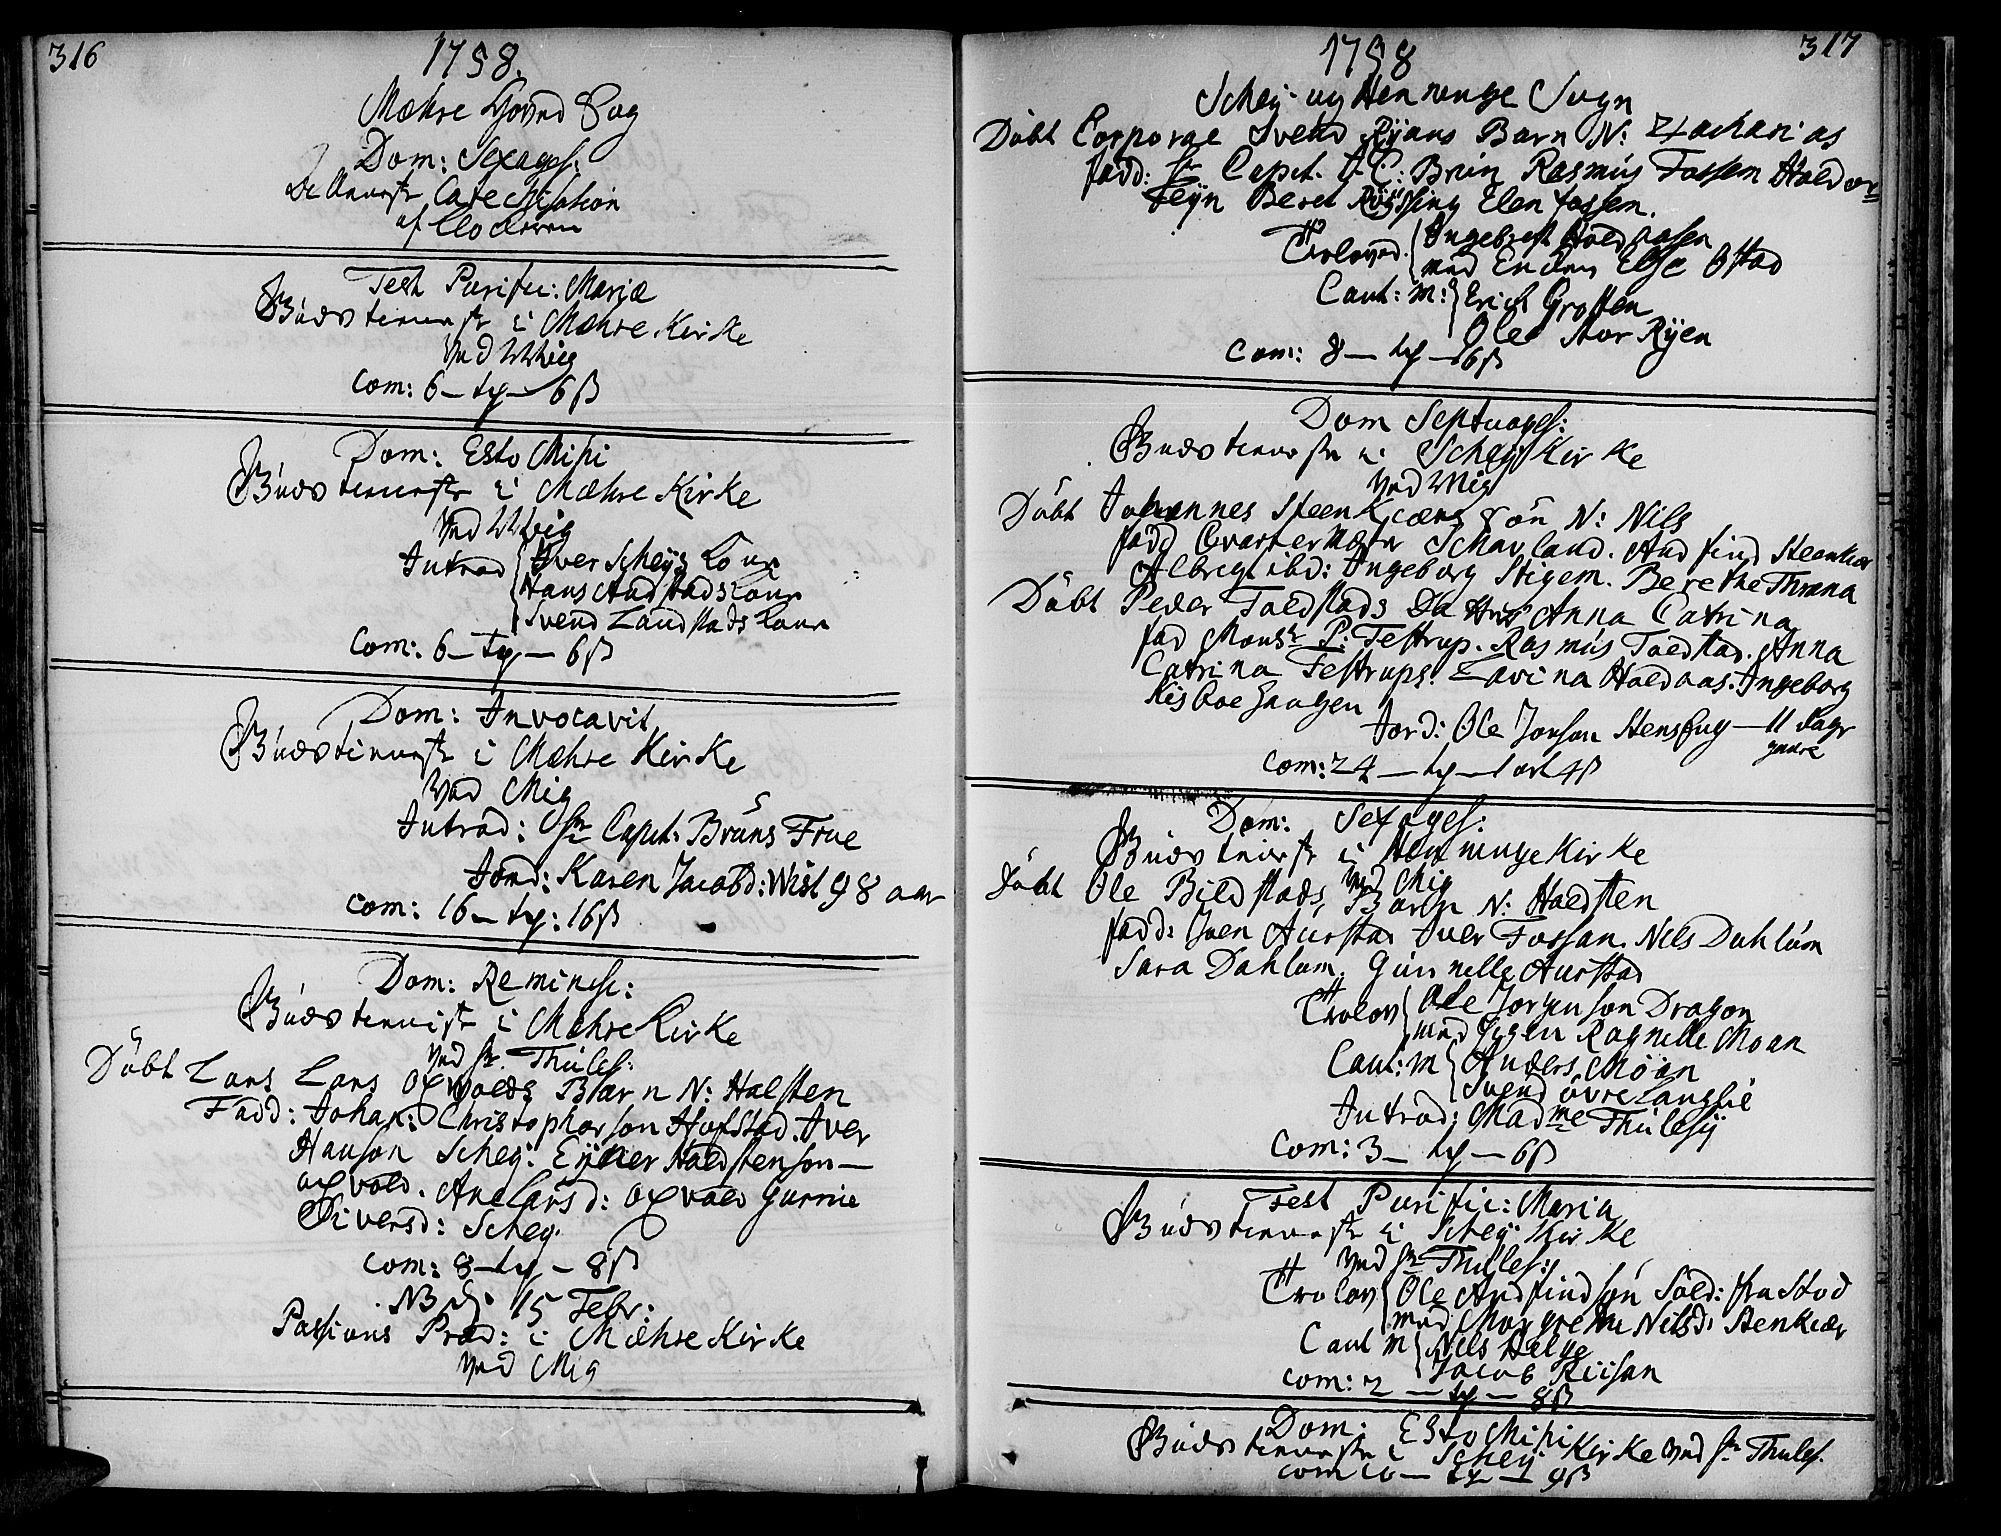 316
1758.
Mæhre Hoved Sog
Dom: Sexages:
Catechisation
af Clocheren
Fest Purific: Mariæ
Gudstienneste i Mæhre Kirke
Ved Mig
Com: 6 — tafl — 6 ß
Dom: Esto Mihi
Gudstienneste i Mæhre Kirke
Ved Mig
Introd Iver Scheys Kone
Hans Audstads Kone
Svend Landstads Kone
Com: 6 — tafl — 6 ß
Dom: Invocavit
Gudstienneste i Mæhre Kirke
Ved Mig
Introd: Hr Capit: Brüns Frue
Jord: Karen Jacobd: Wist 98 aar
Com: 16 — tafl: 16 ß
Dom: Reminisc:
Gudstienneste i Mæhre Kirke
Ved Hr. Thüles:
Döbt Lars Lars Oxvolds Barn N: Halsten
Fadd: Johan: Christopherson Hofstad. Iver
Hanson Schey: Ejller Haldstenson —
Oxvold. Ane Larsd: Oxvold Gurrnie
Siversd: Schey.
Com: 8 — tafl — 8 ß
NB d. 15 Febr:
Passions Præd: i Mæhre Kirke
Ved Mig
1758
317
Schey- og Henninge Sogn
Döbt Corporae Svend Ryans Barn N: Zacharias
fadd: Hr Capit. A.C: Brün Rasmus Fossem Haldor
Feyn Beret Ryssing Elen fossem.
Troloved Ingebregt Haldorsen
med Enchen Else Östad
Caut: m: Erich Grotten
Ole Stor Ryen
Com: 8 — tafl — 16 ß
Dom Septuages:
Gudstienneste i Schey Kirke
Ved Mig
Döbt Johannes Steenkærs Sön N: Nils
fadd Qvartermester Schavland. And find Steenkiær
Albregt ibd: Ingeborg Stigem. Berethe Thrana
Döbt Peder Toldstads Anna Catrina
fad Monsr P: Testrup. Rasmus Toldstad. Anna
Catrina Testrups. Lavina Haldaas. Ingeborg
Jord: Ole Jonson Hensbuy — 11 dage
Com: 24 — tafl — 1 ort 4 ß
Dom: Sexages:
Gudstienneste i Henninge Kirke
Ved Mig
Döbt Ole Bildstads Barn N: Haldsten
fadd: Iven Aurstad Iver Fossan. Nils Dahlum
Sara Dahlum. Gunnelle Aurstad
Trolov Ole Jorgenson Dragon
med Pigen Ragnille Moan
Caut: m Anders Möan
Svend övre Langlie
Introd: Madme Thülesÿ
Com: 3 — tafl — 6 ß
Fest Purific: Maria
Gudstienneste i Schey Kirke
Ved Hr Thüles:
Trolov Ole Andfindsön Sold: fra Stod
med Margrethe Nilsd: Stenkiær
Caut m Nils Helge
Jacob Riisan
Com: 2 — tafl — 8 ß
Dom: Esto Mihi
Gudstienneste i Schey Kirke Ved Hr Thules.
Com 10 — tafl — 9 ß